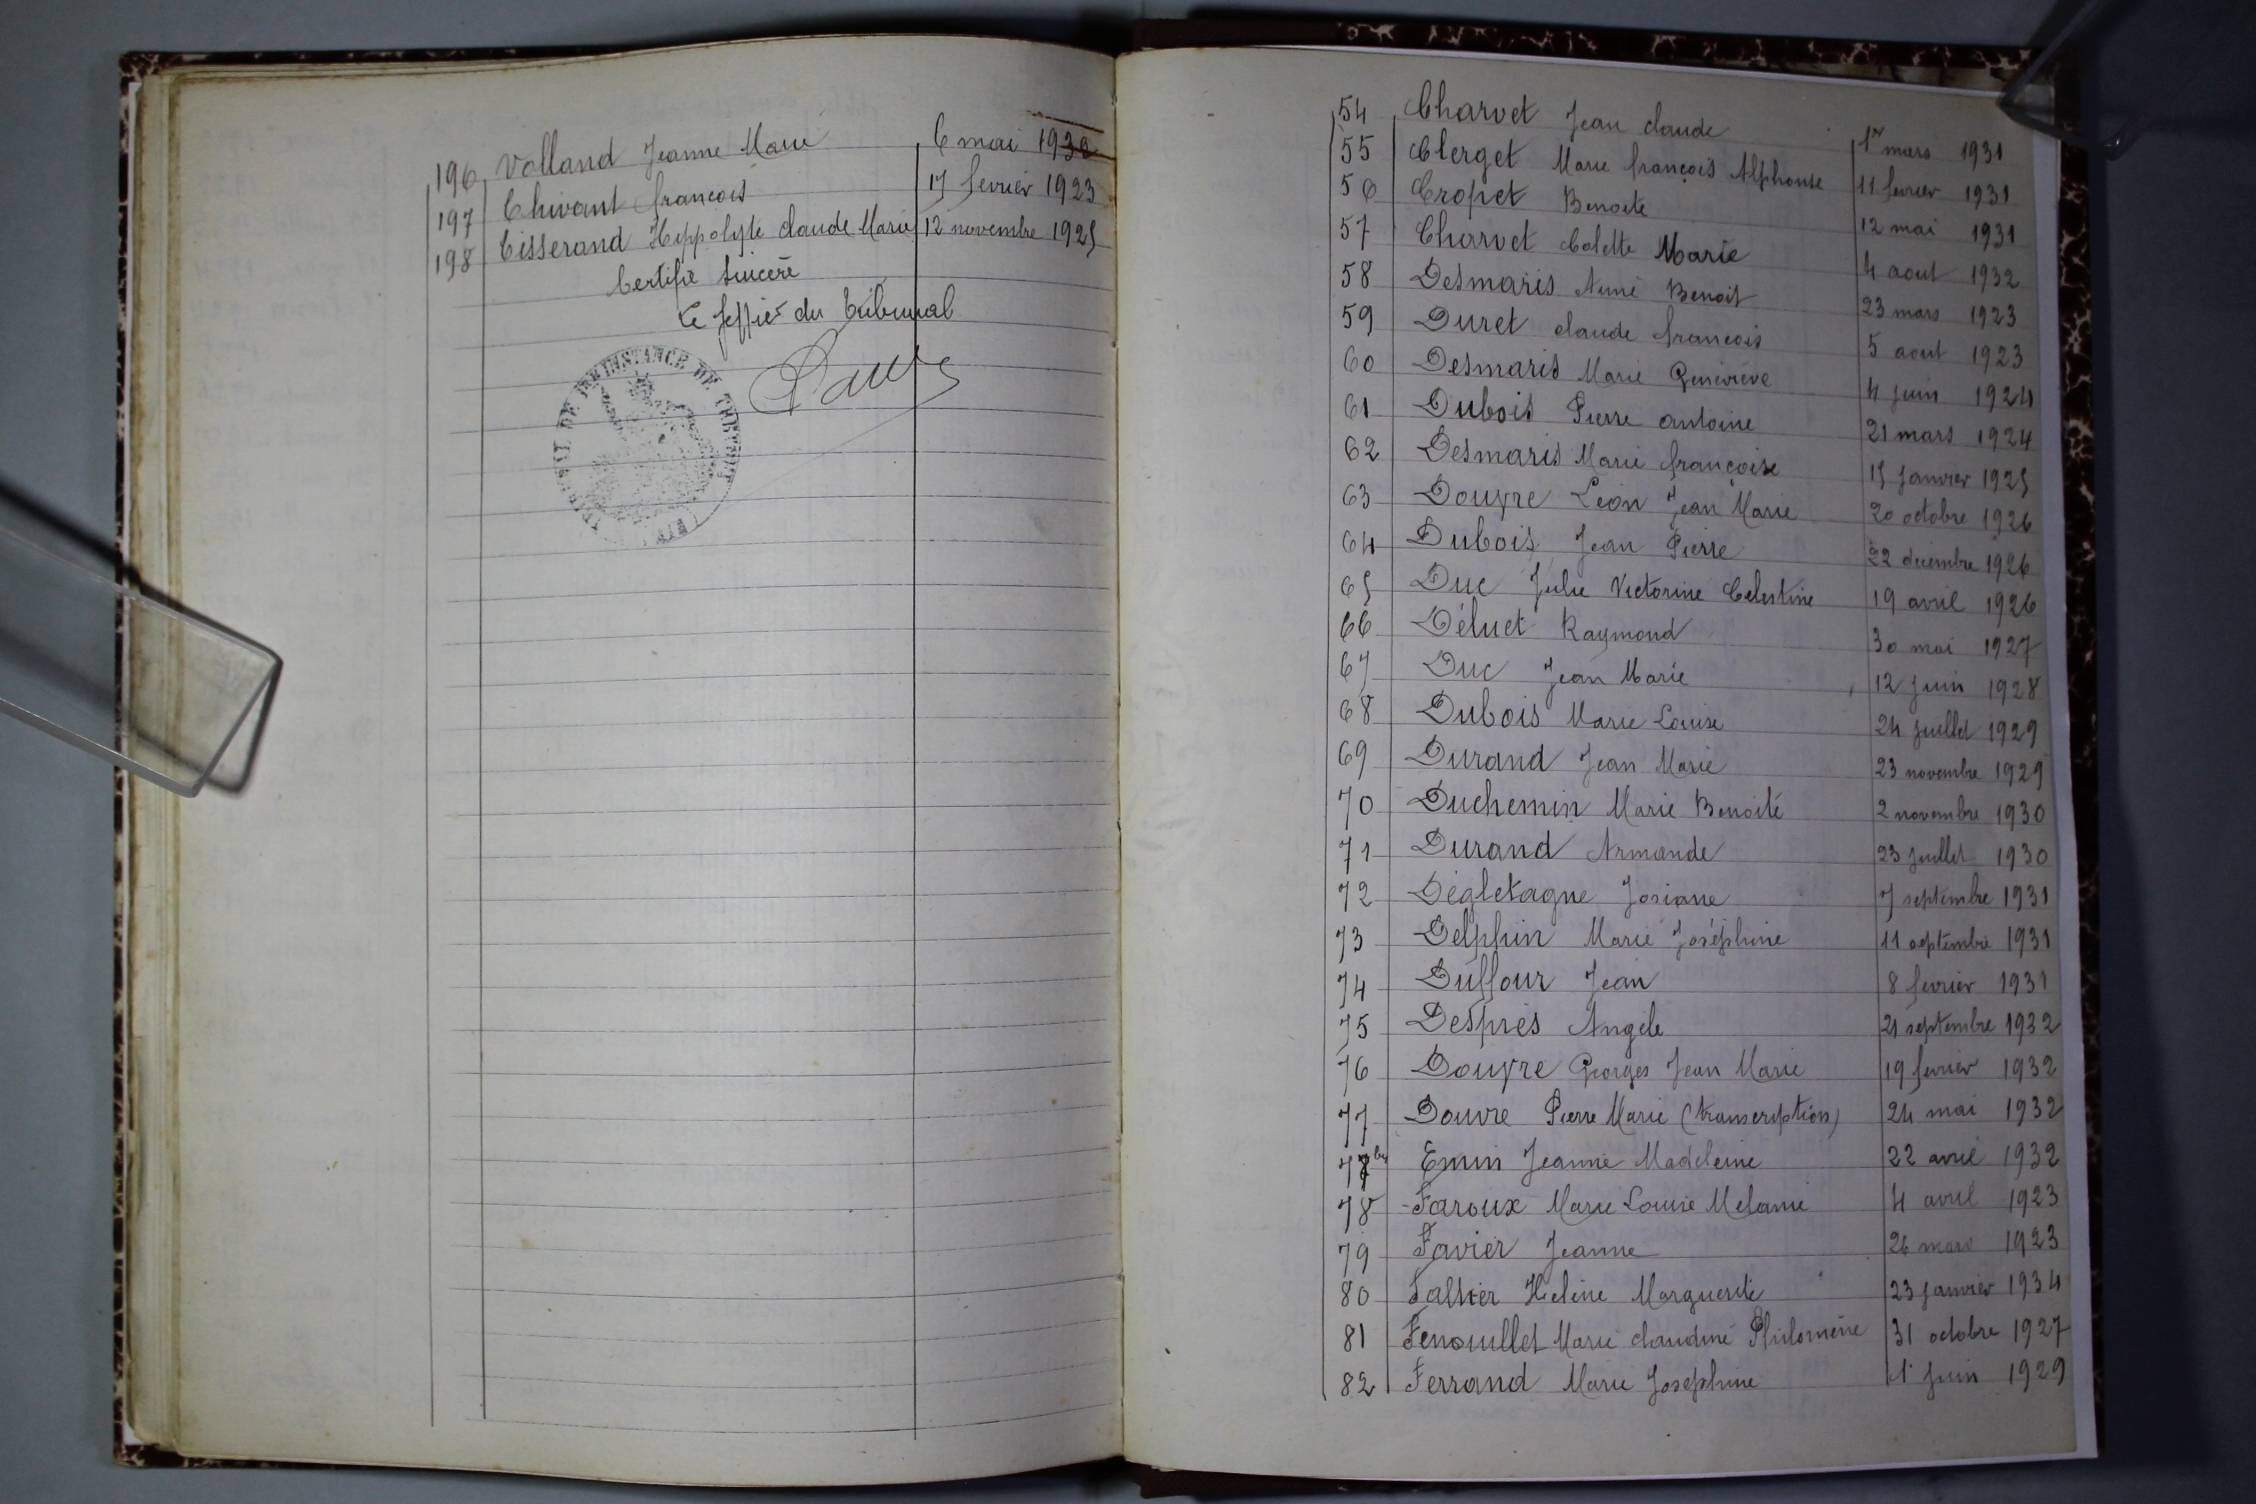 196 Volland Jeanne Marie 6 mai 1930
197 Chivant françois 17 fevrier 1923
198 Tisserand Hippolyte claude Marie 12 novembre 1925
Certifié Sincère
Le Greffier du Tribunal
TRIBUNAL DE 1ère INSTANCE DE TREVOUX
(AIN)
54 Charvet Jean claude 1er mars 1931
55 Clerget Marie françois Alphonse 11 fevrier 1931
56 Cropet Benoite 12 mai 1931
57 Charvet Colette Marie 4 aout 1932
58 Desmaris Aimé Benoit 23 mars 1923
59 Duret claude françois 5 aout 1923
60 Desmaris Marie Geneviève 4 juin 1924
61 Dubois Pierre antoine 21 mars 1924
62 Desmaris Marie françoise 15 Janvier 1925
63 Douvre Léon Jean Marie 20 octobre 1926
64 Dubois Jean Pierre 22 decembre 1926
65 Duc Julie Victorine Celestine 19 avril 1926
66 Déluet Raymond 30 mai 1927
67 Duc Jean Marie 12 juin 1928
68 Dubois Marie Louise 24 juillet 1929
69 Durand Jean Marie 23 novembre 1929
70 Duchemin Marie Benoité 2 novembre 1930
71 Durand Armande 23 juillet 1930
72 Dégletagne Josiane 7 septembre 1931
73 Delphin Marie Joséphine 11 septembre 1931
74 Duffour Jean 8 fevrier 1931
75 Desprès Angèle 21 septembre 1932
76 Douvre Georges Jean Marie 19 fevrier 1932
77 Douvre Pierre Marie (transcription) 24 mai 1932
77bis Emin Jeanne Madeleine 22 avril 1932
78 Faroux Marie Louise Melanie 4 avril 1923
79 Favier Jeanne 26 mars 1923
80 Hélène Marguerite 23 janvier 1934
81 Fenouillet Marie claudine Philomène 31 octobre 1927
82 Ferrand Marie Joséphine 1er juin 1929